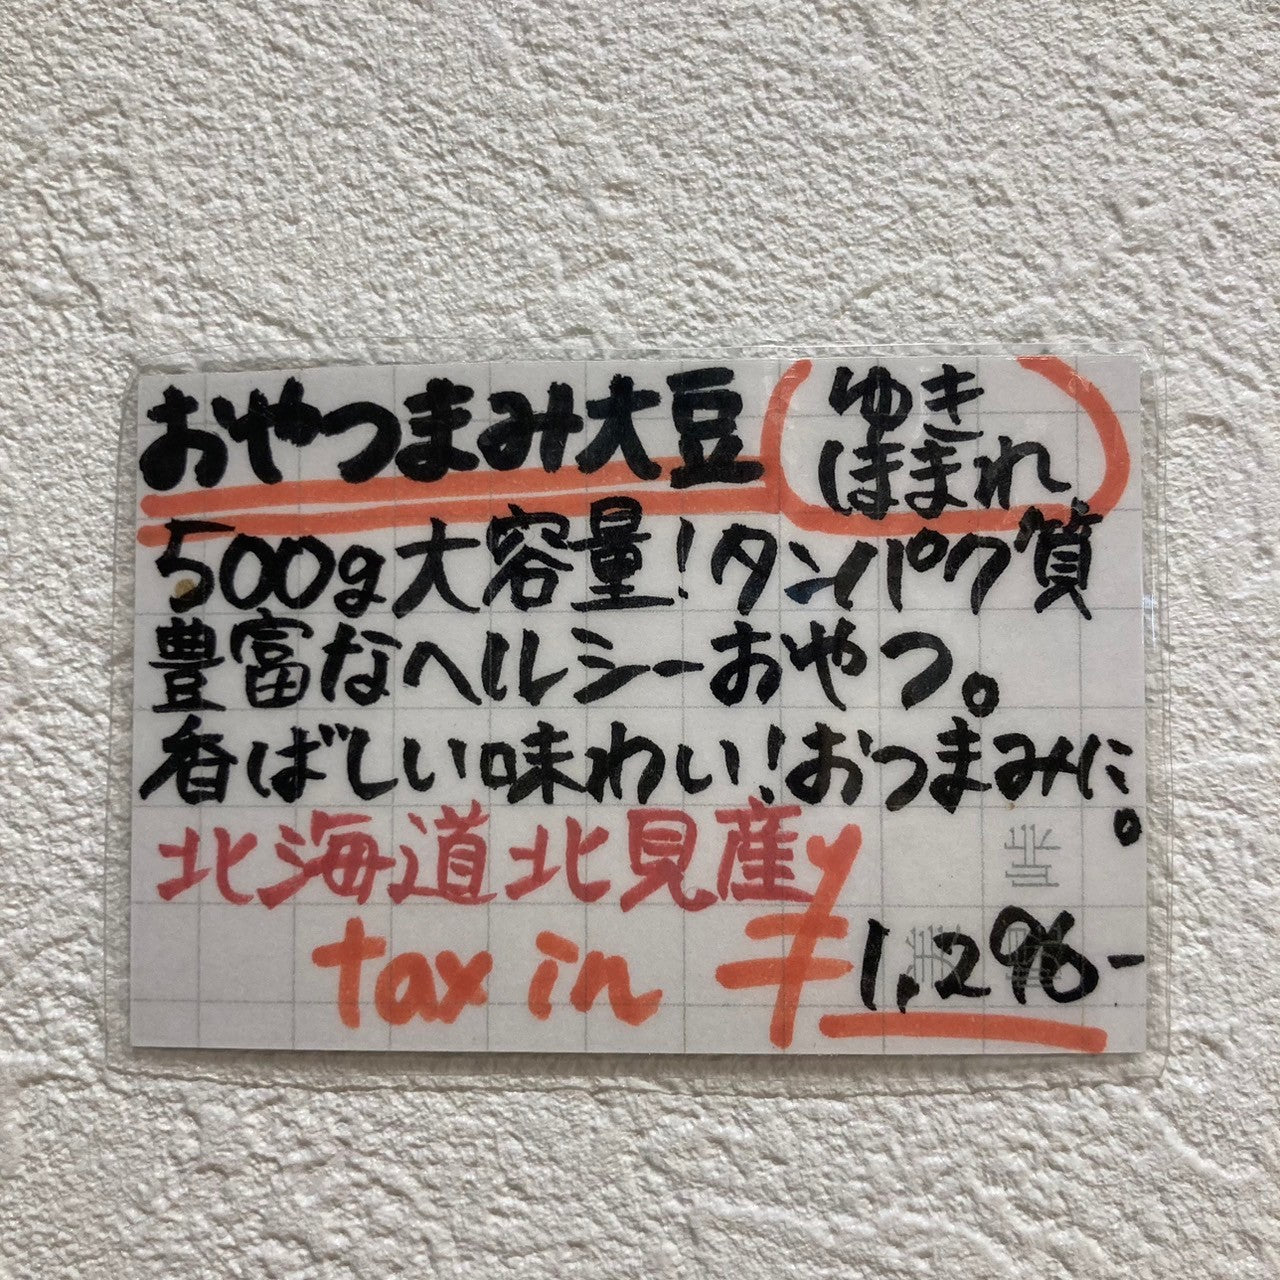 おやつまみ大豆
ゆき
ほまれ
500g大容量!タンパク質
豊富なヘルシーおやつ。
香ばしい味わい!おつまみに。
北海道北見産
tax in ¥1,296-